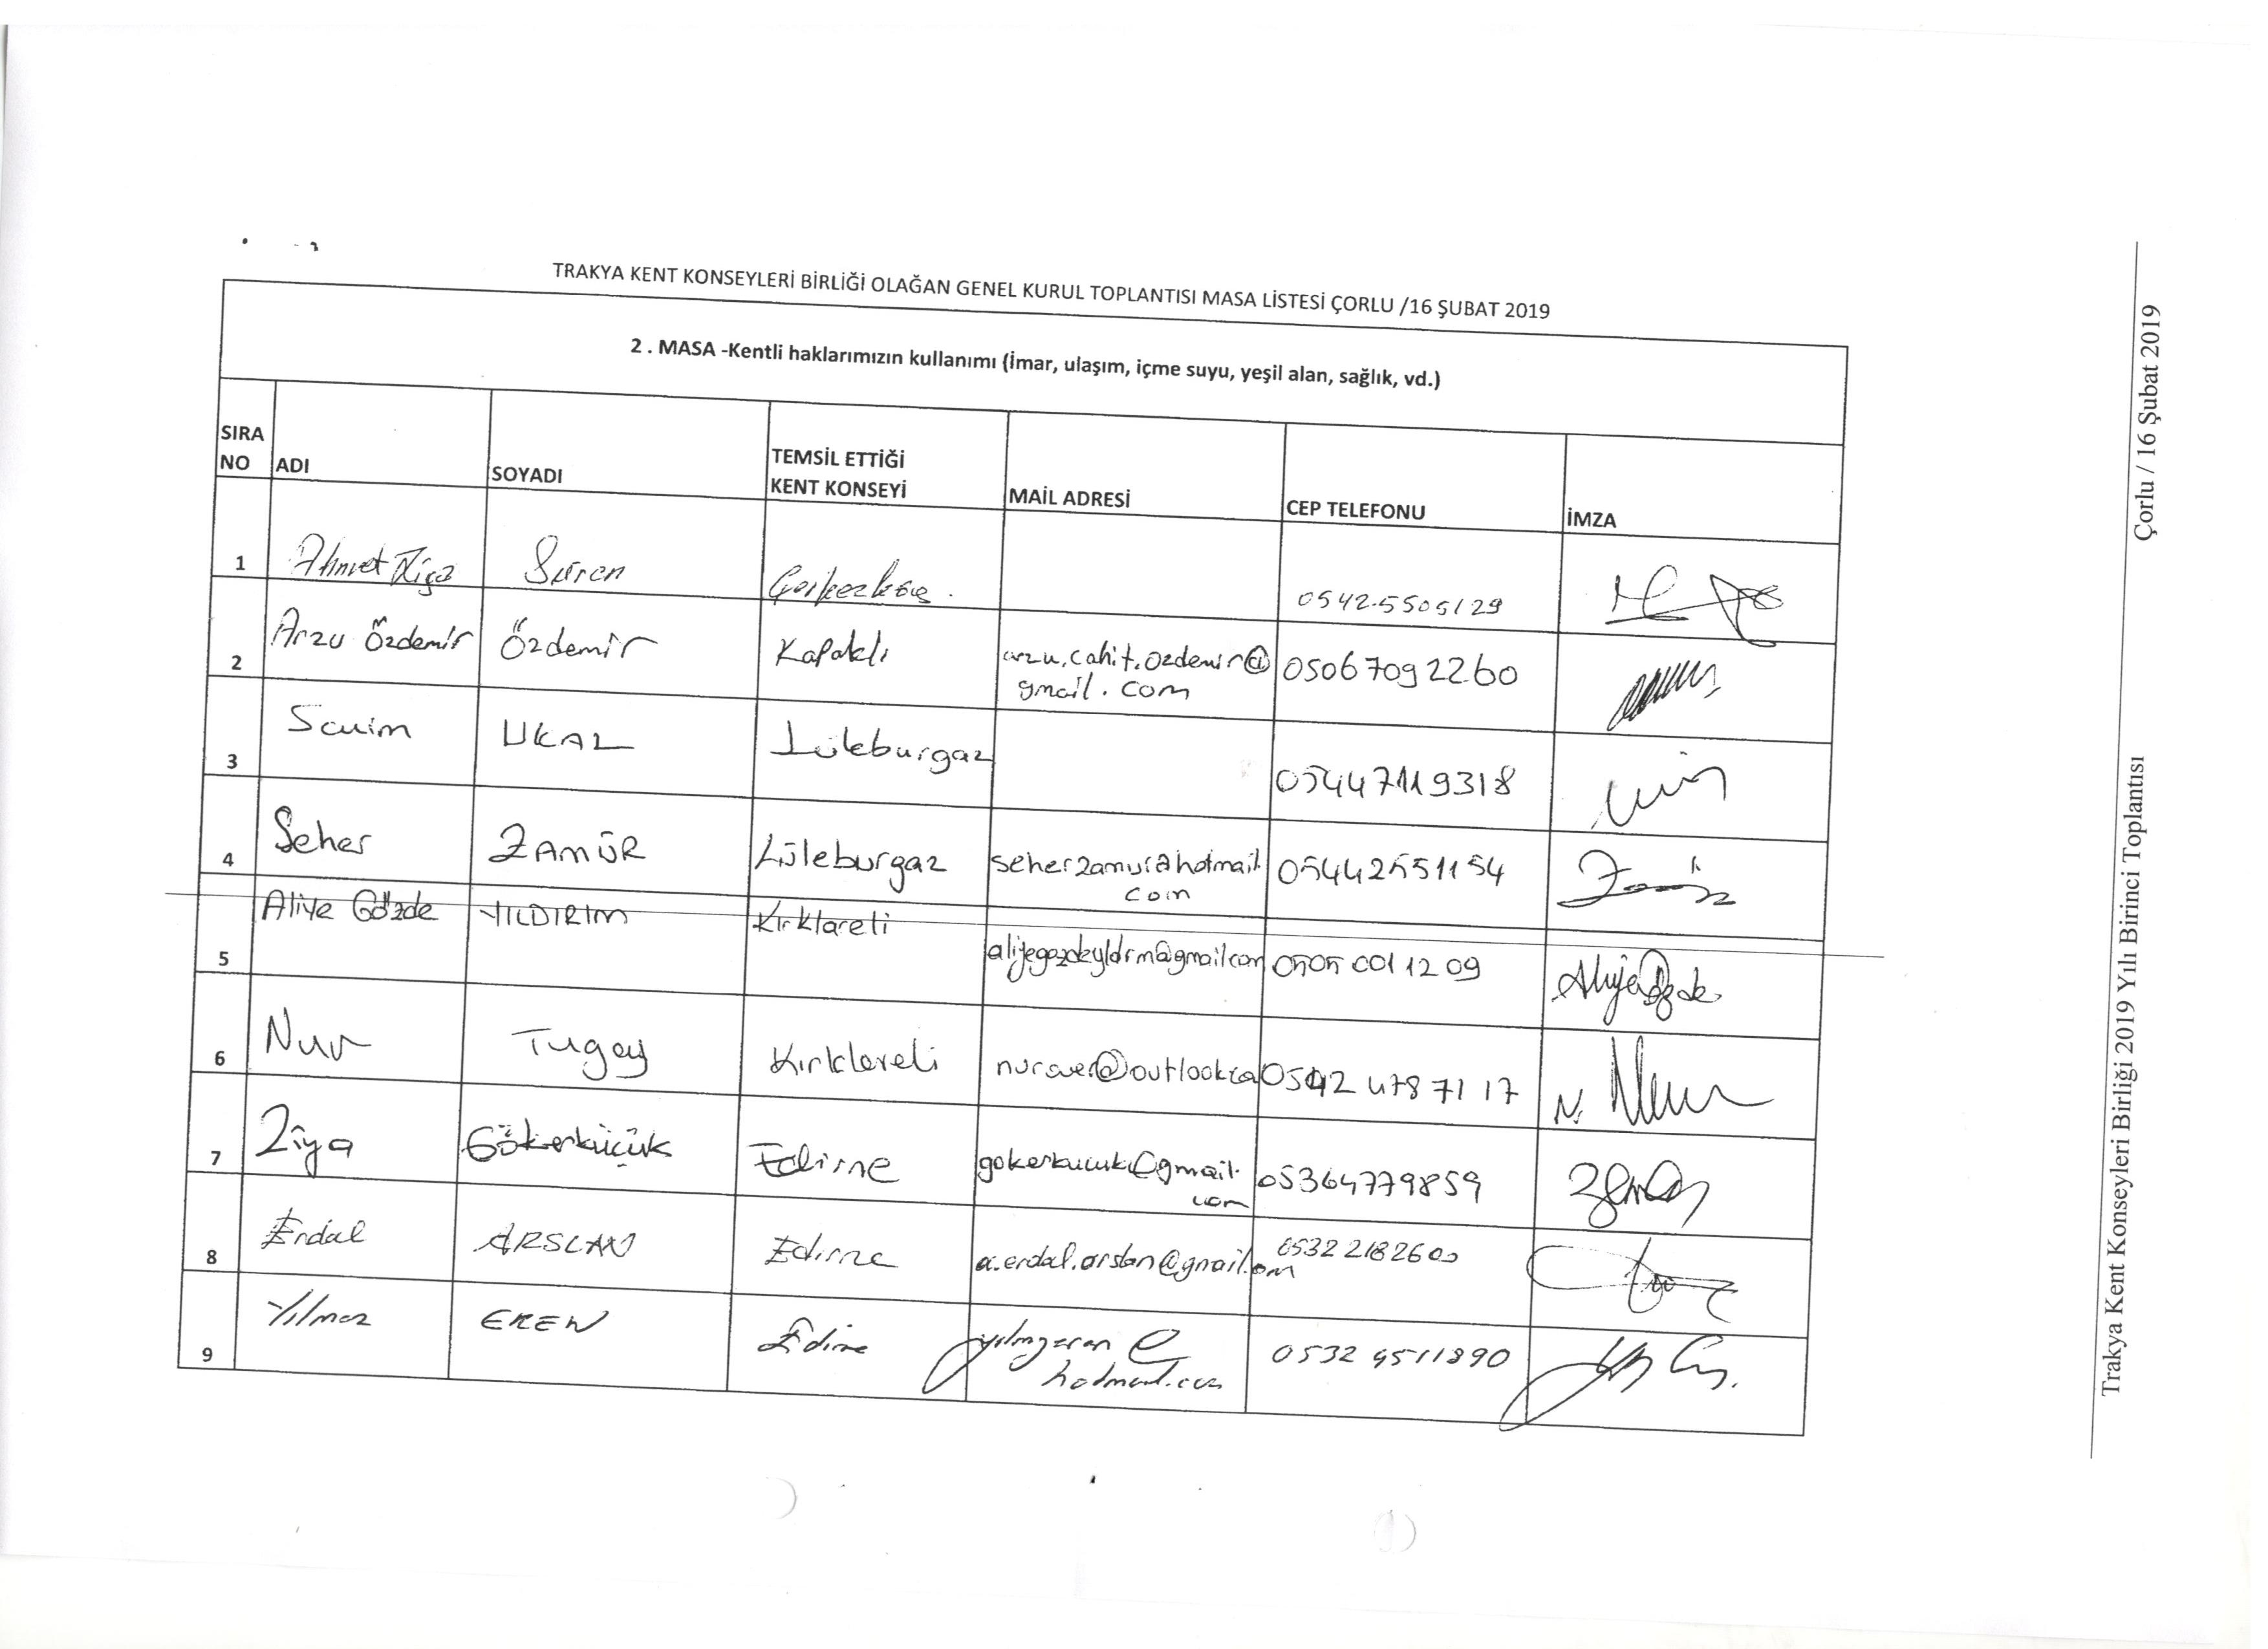 TRAKYA KENT KONSEYLERİ BİRLİĞİ OLAĞAN GENEL KURUL TOPLANTISI MASA LİSTESİ ÇORLU /16 ŞUBAT 2019
2 . MASA -Kentli haklarımızın kullanımı (İmar, ulaşım, içme suyu, yeşil alan, sağlık, vd.)
SIRA NO ADI SOYADI TEMSİL ETTİĞİ KENT KONSEYİ MAİL ADRESİ CEP TELEFONU İMZA
1 Ahmet Süren 0542 5505129
2 Arzu Özdemir Özdemir Kapaklı arzu.cahit.ozdemir@ 05067092260
gmail.com
3 UKAL Lüleburgaz 05447119318
4 Seher ZAMÜR Lüleburgaz seherzamur@hotmail. 05442551154
com
5 Aliye Gözde YILDIRIM Kırklareli aliyegozdeyldrm@gmail.com 0505 001 12 09
6 Nur Tugay Kırklareli 0542 478 71 17
7 Ziya Gökerküçük Edirne gokerkucuk@gmail. 05364779859
com
8 Erdal ARSLAN Edirne a.erdal.arslan@gmail.com 0532 2182600
9 Yılmaz EREN Edirne yılmzeren@ 0532 4511890
hotmail.com
Trakya Kent Konseyleri Birliği 2019 Yılı Birinci Toplantısı Çorlu / 16 Şubat 2019